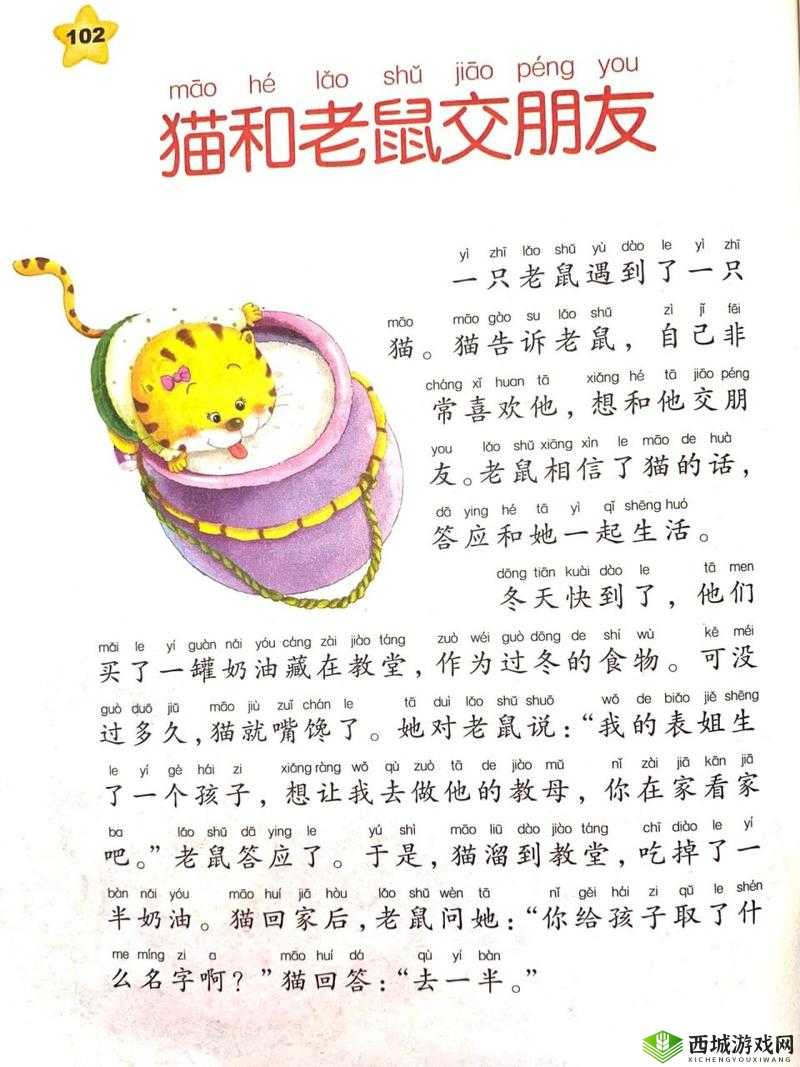 102
māo hé lǎo shǔ jiāo péng you
猫和老鼠交朋友
yì zhī lǎo shǔ yù dào le yì zhī
一只老鼠遇到了一只
māo māo gào su lǎo shǔ zì jǐ fēi
猫。猫告诉老鼠，自己非
cháng xǐ huan tā xiǎng hé tā jiāo péng
常喜欢他，想和他交朋
you lǎo shǔ xiāng xìn le māo de huà
友。老鼠相信了猫的话，
dā ying hé tā yì qǐ shēng huó
答应和她一起生活。
dōng tiān kuài dào le tā men
冬天快到了，他们
mǎi le yí guàn nǎi yóu cáng zài jiào táng zuò wéi guò dōng de shí wù kě méi
买了一罐奶油藏在教堂，作为过冬的食物。可没
guò duō jiǔ māo jiù zuǐ chán le tā duì lǎo shǔ shuō wǒ de biǎo jiě shēng
过多久，猫就嘴馋了。她对老鼠说：“我的表姐生
le yí gè hái zi xiǎng ràng wǒ qù zuò tā de jiào mǔ nǐ zài jiā kān jiā
了一个孩子，想让我去做他的教母，你在家看家
ba lǎo shǔ dā ying le yú shì māo liū dào jiào táng chī diào le yí
吧。”老鼠答应了。于是，猫溜到教堂，吃掉了一
bàn nǎi yóu māo huí jiā hòu lǎo shǔ wèn tā nǐ gěi hái zi qǔ le shén
半奶油。猫回家后，老鼠问她：“你给孩子取了什
me míng zi a māo huí dá qù yí bàn
么名字啊？”猫回答：“去一半。”
西城游戏网
XICHENGYOUXIWANG